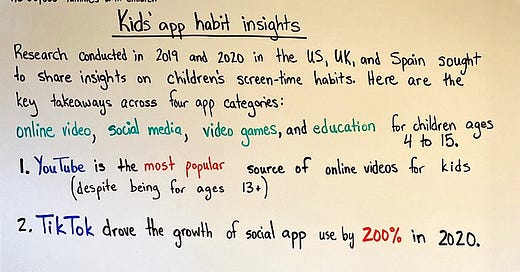 families with children
Kids' app habit insights
Research conducted in 2019 and 2020 in the US, UK, and Spain sought
to share insights on children's screen-time habits. Here are the
key takeaways across four app categories:
online video, social media, video games, and education for children ages
4 to 15.
1. YouTube is the most popular source of online videos for kids
(despite being for ages 13+)
2. TikTok drove the growth of social app use by 200% in 2020.